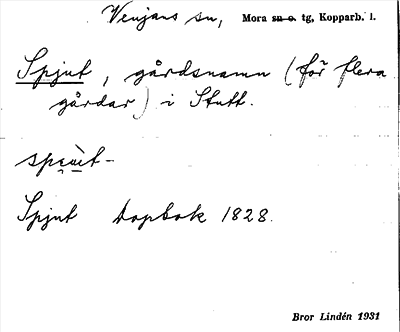 Venjans sn, Mora sn o. tg, Kopparb. l.
Spjut, gårdsnamn (för flera
gårdar) i Stutt.
Spjut Dopbok 1828.
Bror Lindén 1931